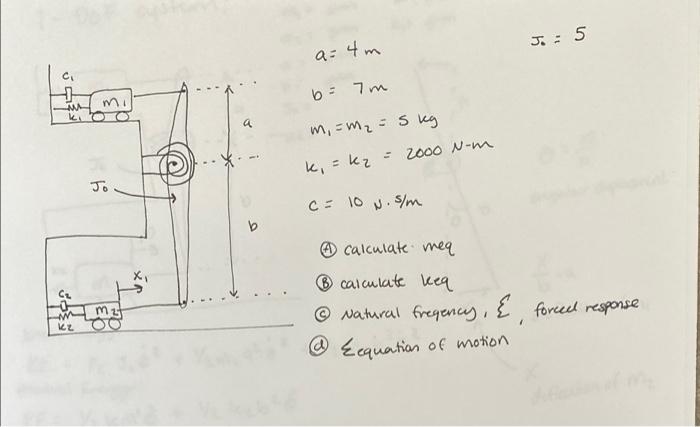 a = 4 m
J₀ = 5
b = 7 m
m₁ = m₂ = 5 kg
k₁ = k₂ = 2000 N-m
c = 10 N·s/m
Ⓐ calculate meq
Ⓑ calculate keq
Ⓒ Natural freqency, ξ, forced response
ⓓ Eequation of motion
c₁
m₁
k₁
a
J₀
b
x₁
c₂
m₂
k₂